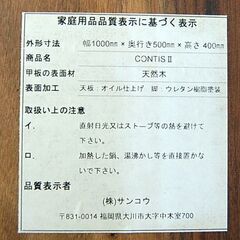 家庭用品品質表示に基づく表示
外形寸法 幅1000mm×奥行き500mm×高さ400mm
商品名 CONTISⅡ
甲板の表面材 天然木
表面加工 天板:オイル仕上げ 脚:ウレタン樹脂塗装
取扱い上の注意
イ. 直射日光又はストーブ等の熱を避けて
下さい。
ロ. 加熱した鍋、湯沸かし等を直接置かな
いで下さい。
品質表示者 (株)サンコウ
〒831-0014 福岡県大川市大字中木室700